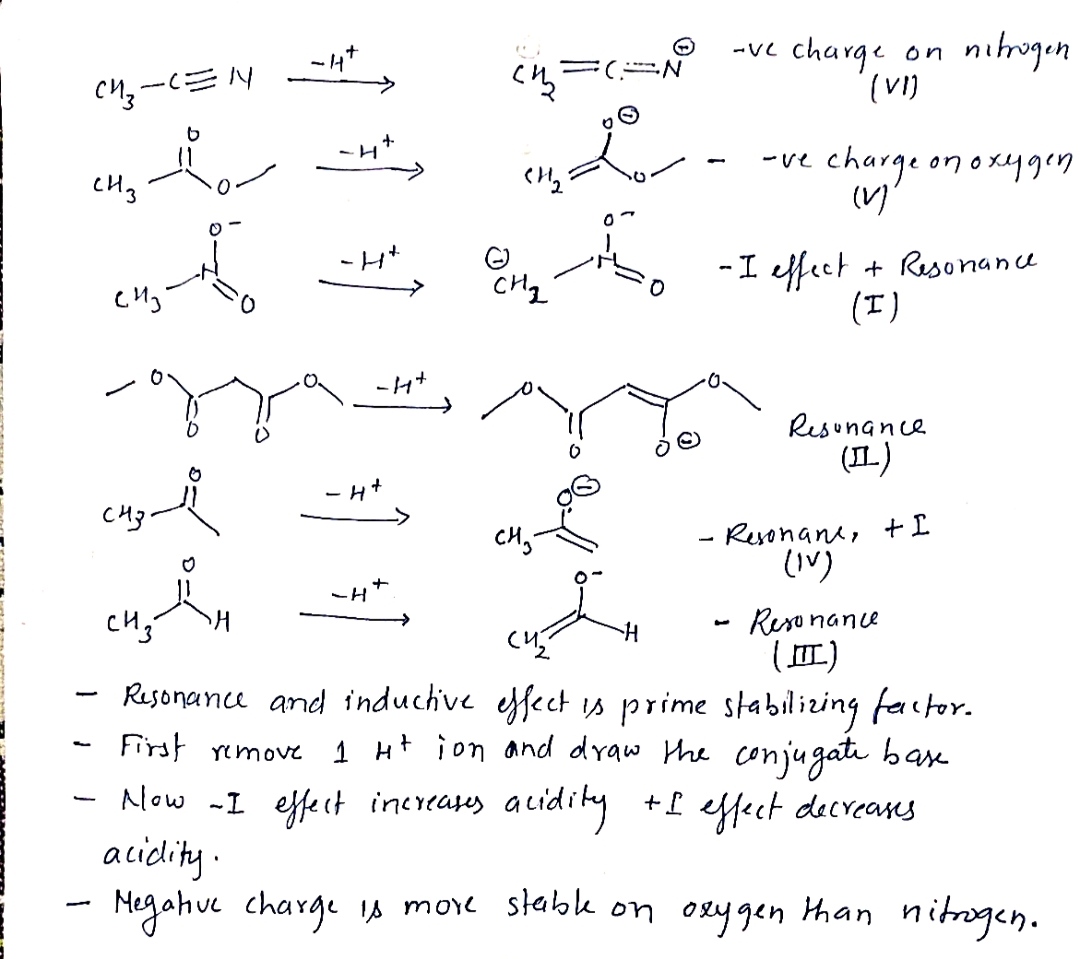 CH3-C≡N -H+ CH2=C=N ⊖ -ve charge on nitrogen
(VI)
CH3 O O -H+ CH2 O ⊖ O - -ve charge on oxygen
(V)
CH3 O- N O -H+ ⊖ CH2 O- N O -I effect + Resonance
(I)
O O O O -H+ O O O ⊖ O Resonance
(II)
CH3 O -H+ CH3 O ⊖ - Resonane, +I
(IV)
CH3 O H -H+ CH2 O- H - Resonance
(III)
- Resonance and inductive effect is prime stabilizing factor.
- First remove 1 H+ ion and draw the conjugate base
- Now -I effect increases acidity +I effect decreases
acidity.
- Negative charge is more stable on oxygen than nitrogen.